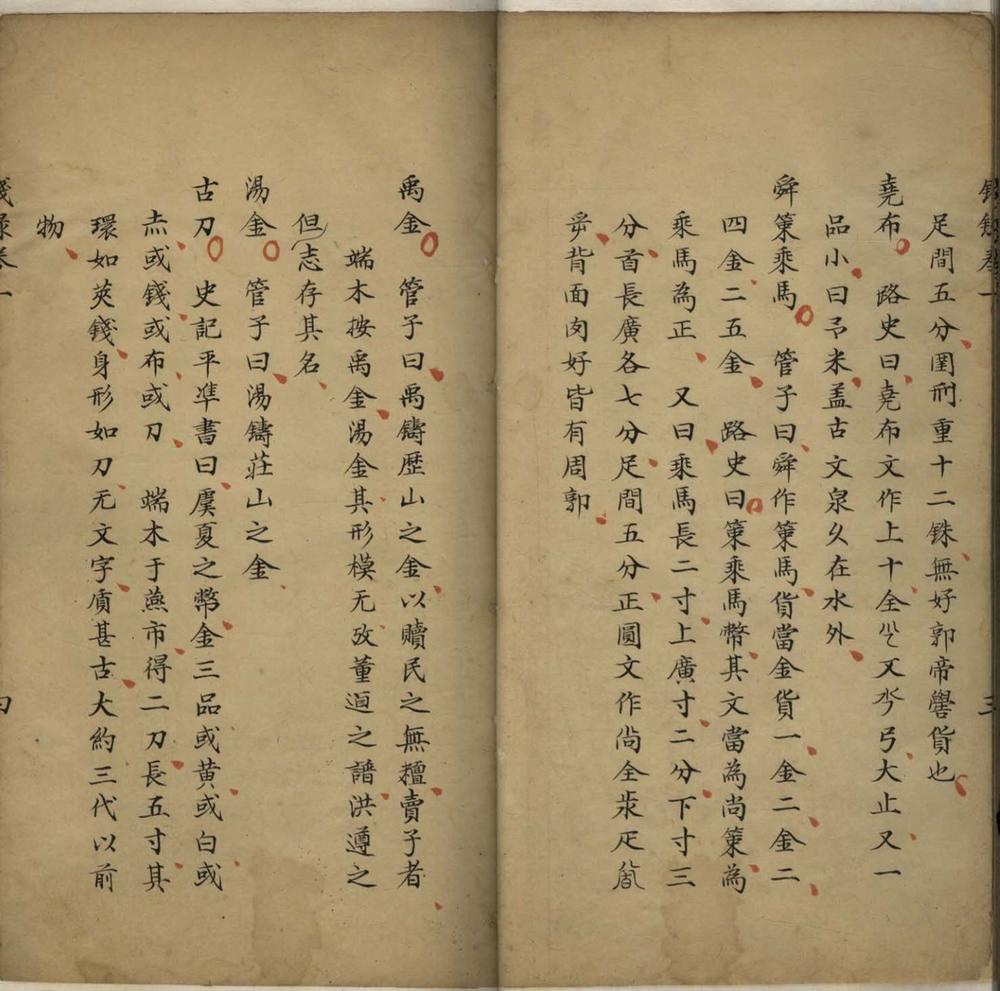 錢錄卷一 三
足間五分圍刑重十二銖無好郭帝嚳貨也
堯布 路史曰堯布文作上十全
弓大止又一
品小曰予米盖古文泉久在水外
舜策乘馬 管子曰舜作策馬貨當金貨一金二金二
四金二五金 路史曰策乘馬幣其文當為尚策為
乘馬為正 又曰乘馬長二寸上廣寸二分下寸三
分首長廣各七分足間五分正圓文作尙全
背面肉好皆有周郭
禹金 管子曰禹鑄歷山之金以贖民之無檀賣子者
端木按禹金湯金其形模无攷董逌之譜洪遵之
但志存其名
湯金 管子曰湯鑄莊山之金
古刀 史記平凖書曰虞夏之幣金三品或黄或白或
赤或錢或布或刀 端木于燕市得二刀長五寸其
環如莢錢身形如刀无文字質甚古大約三代以前
物
錢录卷一 四